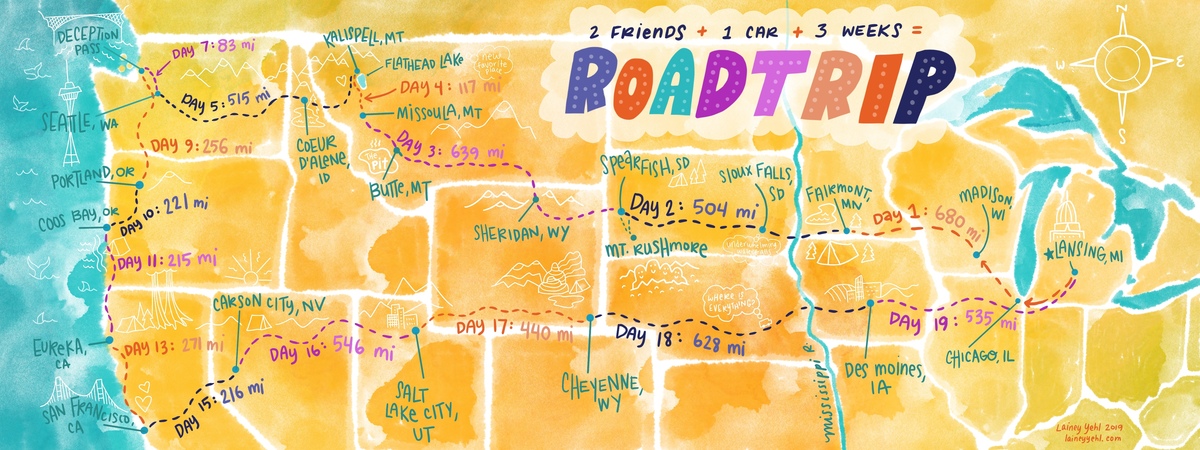 2 FRIENDS + 1 CAR + 3 WEEKS =
ROADTRIP
N
W
E
S
DECEPTION
PASS
DAY 7: 83 mi
SEATTLE, WA
DAY 5: 515 mi
COEUR
D'ALENE,
ID
KALISPELL, MT
FLATHEAD LAKE
new
favorite
place
DAY 4: 117 mi
MISSOULA, MT
THE
PIT
BUTTE, MT
DAY 3: 639 mi
SHERIDAN, WY
SPEARFISH, SD
MT. RUSHMORE
DAY 2: 504 mi
SIOUX FALLS,
SD
underwhelming
FAIRMONT,
MN
DAY 1: 680 mi
MADISON,
WI
LANSING, MI
DAY 9: 256 mi
PORTLAND, OR
COOS BAY, OR
DAY 10: 221 mi
DAY 11: 215 mi
EUREKA,
CA
DAY 13: 271 mi
SAN FRANCISCO,
CA
DAY 15: 216 mi
CARSON CITY, NV
DAY 16: 546 mi
SALT
LAKE CITY,
UT
DAY 17: 440 mi
CHEYENNE,
WY
DAY 18: 628 mi
WHERE IS
EVERYTHING?
mississippi R.
DES MOINES,
IA
DAY 19: 535 mi
CHICAGO, IL
Lainey Yehl 2019
laineyyehl.com